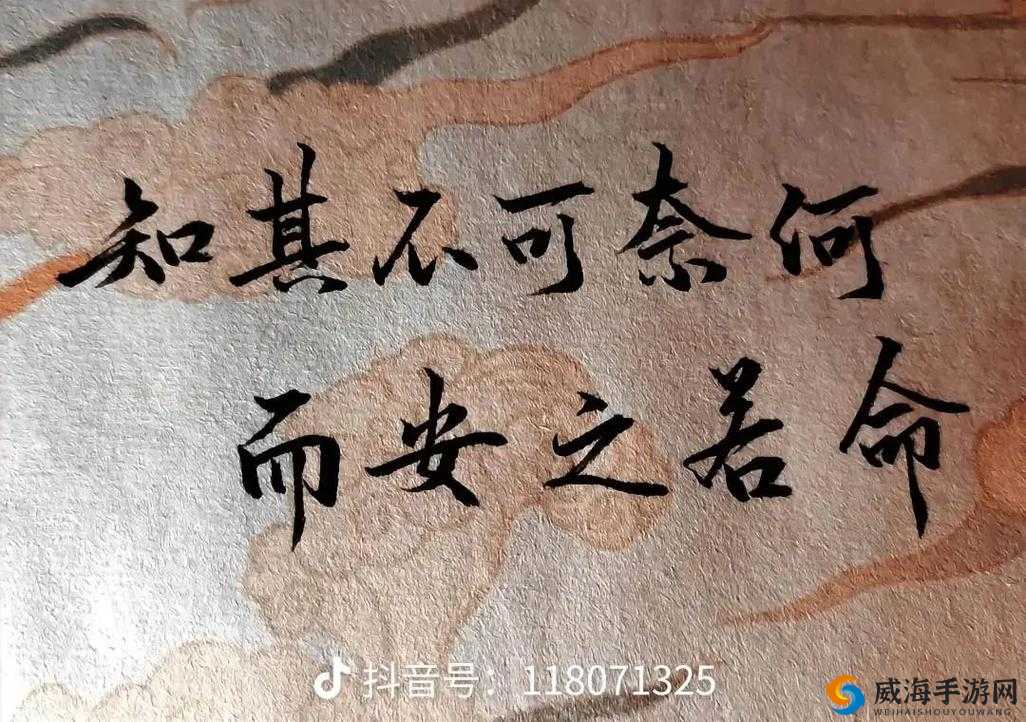 知其不可奈何
而安之若命
抖音号：118071325
威海手游网
WEIHAISHOUYOUWANG